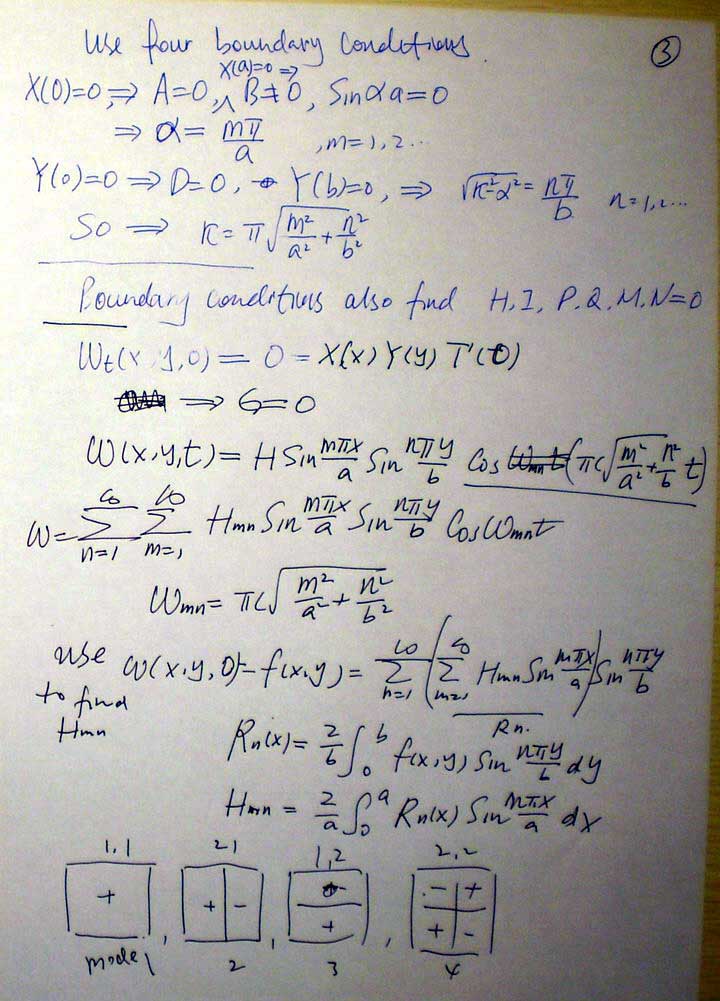 ③
Use four boundary conditions
X(a)=0 ⇒
X(0)=0, ⇒ A=0, ∧ B≠0, Sin α a = 0
⇒ α = mπ/a , m=1,2...
Y(0)=0 ⇒ D=0, Y(b)=0, ⇒ √(κ²-α²) = nπ/b n=1,2...
So ⇒ κ = π√(m²/a² + n²/b²)
Boundary conditions also find H, I, P, Q, M, N=0
Wt(x,y,0) = 0 = X(x) Y(y) T'(0)
⇒ G=0
W(x,y,t) = H Sin mπx/a Sin nπy/b Cos (πc√(m²/a² + n²/b) t)
W = ∑_{n=1}^{∞} ∑_{m=1}^{∞} Hmn Sin mπx/a Sin nπy/b Cos ωmnt
ωmn = πc√(m²/a² + n²/b²)
use W(x,y,0) = f(x,y) = ∑_{n=1}^{∞} (∑_{m=1}^{∞} Hmn Sin mπx/a) Sin nπy/b
to find
Hmn
Rn.
Rn(x) = 2/b ∫₀ᵇ f(x,y) Sin nπy/b dy
Hmn = 2/a ∫₀ᵃ Rn(x) Sin mπx/a dx
1,1 2,1 1,2 2,2
+ + - - - +
+ + -
mode 1, 2, 3, 4